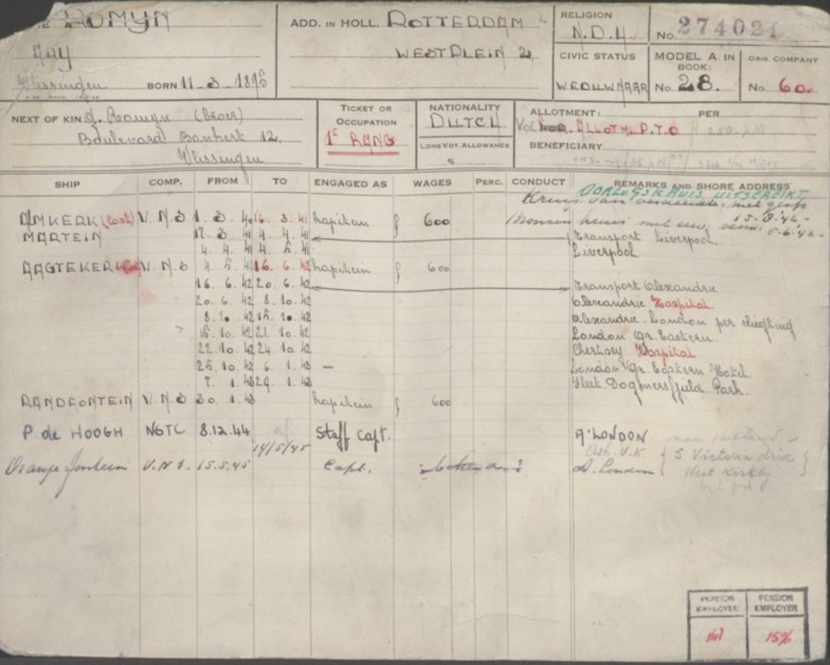 ROMYN
ADD. IN HOLL. ROTTERDAM
WESTPLEIN 2
RELIGION
N.D.H.
No. 274021
CIVIC STATUS
WEDUWNAAR
MODEL A IN BOOK:
No. 28.
ORIG. COMPANY
No. 60.
Vlissingen BORN 11-3-1895
NEXT OF KIN J. Romyn (Broer)
Boulevard Bankert 12,
Vlissingen
TICKET OR OCCUPATION
1e RANG
NATIONALITY
DUTCH
LONG VOY. ALLOWANCE
ALLOTMENT: PER
ALLOTM. P.T.O
BENEFICIARY
SHIP COMP. FROM TO ENGAGED AS WAGES PERC. CONDUCT REMARKS AND SHORE ADDRESS
OORLOGSKRUIS UITGEREIKT
Kruis van Verdienste met gesp
AMKERK V.N.S 1. 3. 41 16. 3. 41 kapitein 600
MARTEIN 17. 3 41 4. 4. 41 Transport Liverpool
4. 4. 41 4. 5. 41 Liverpool
AAGTEKERK V.N.S 4. 5. 41 16. 6. 42 kapitein 600
16. 6. 42 20. 6. 42 Transport Alexandrie
20. 6. 42 8. 10. 42 Alexandrie Hospital
8. 10. 42 15. 10. 42 Alexandrie. London per vliegtuig
15. 10. 42 21. 10. 42 London Gr. Eastern.
22. 10. 42 24. 10. 42 Chertsey Hospital
25. 10. 42 6. 1. 43 — London Gr. Eastern Hotel
7. 1. 43 29. 1. 43 Fleet Dogmersfield Park.
RANDFONTEIN V.N.S 30. 1. 43 kapitein 600
P. de HOOGH NGTC 8.12.44 af 14/5/45 Staff Capt. A'LONDON
Oranjefontein V.N.S. 15.5.45 Capt. A. London
5 Victoria drive
West Kirkby
PENSION EMPLOYEE
nil
PENSION EMPLOYER
15%